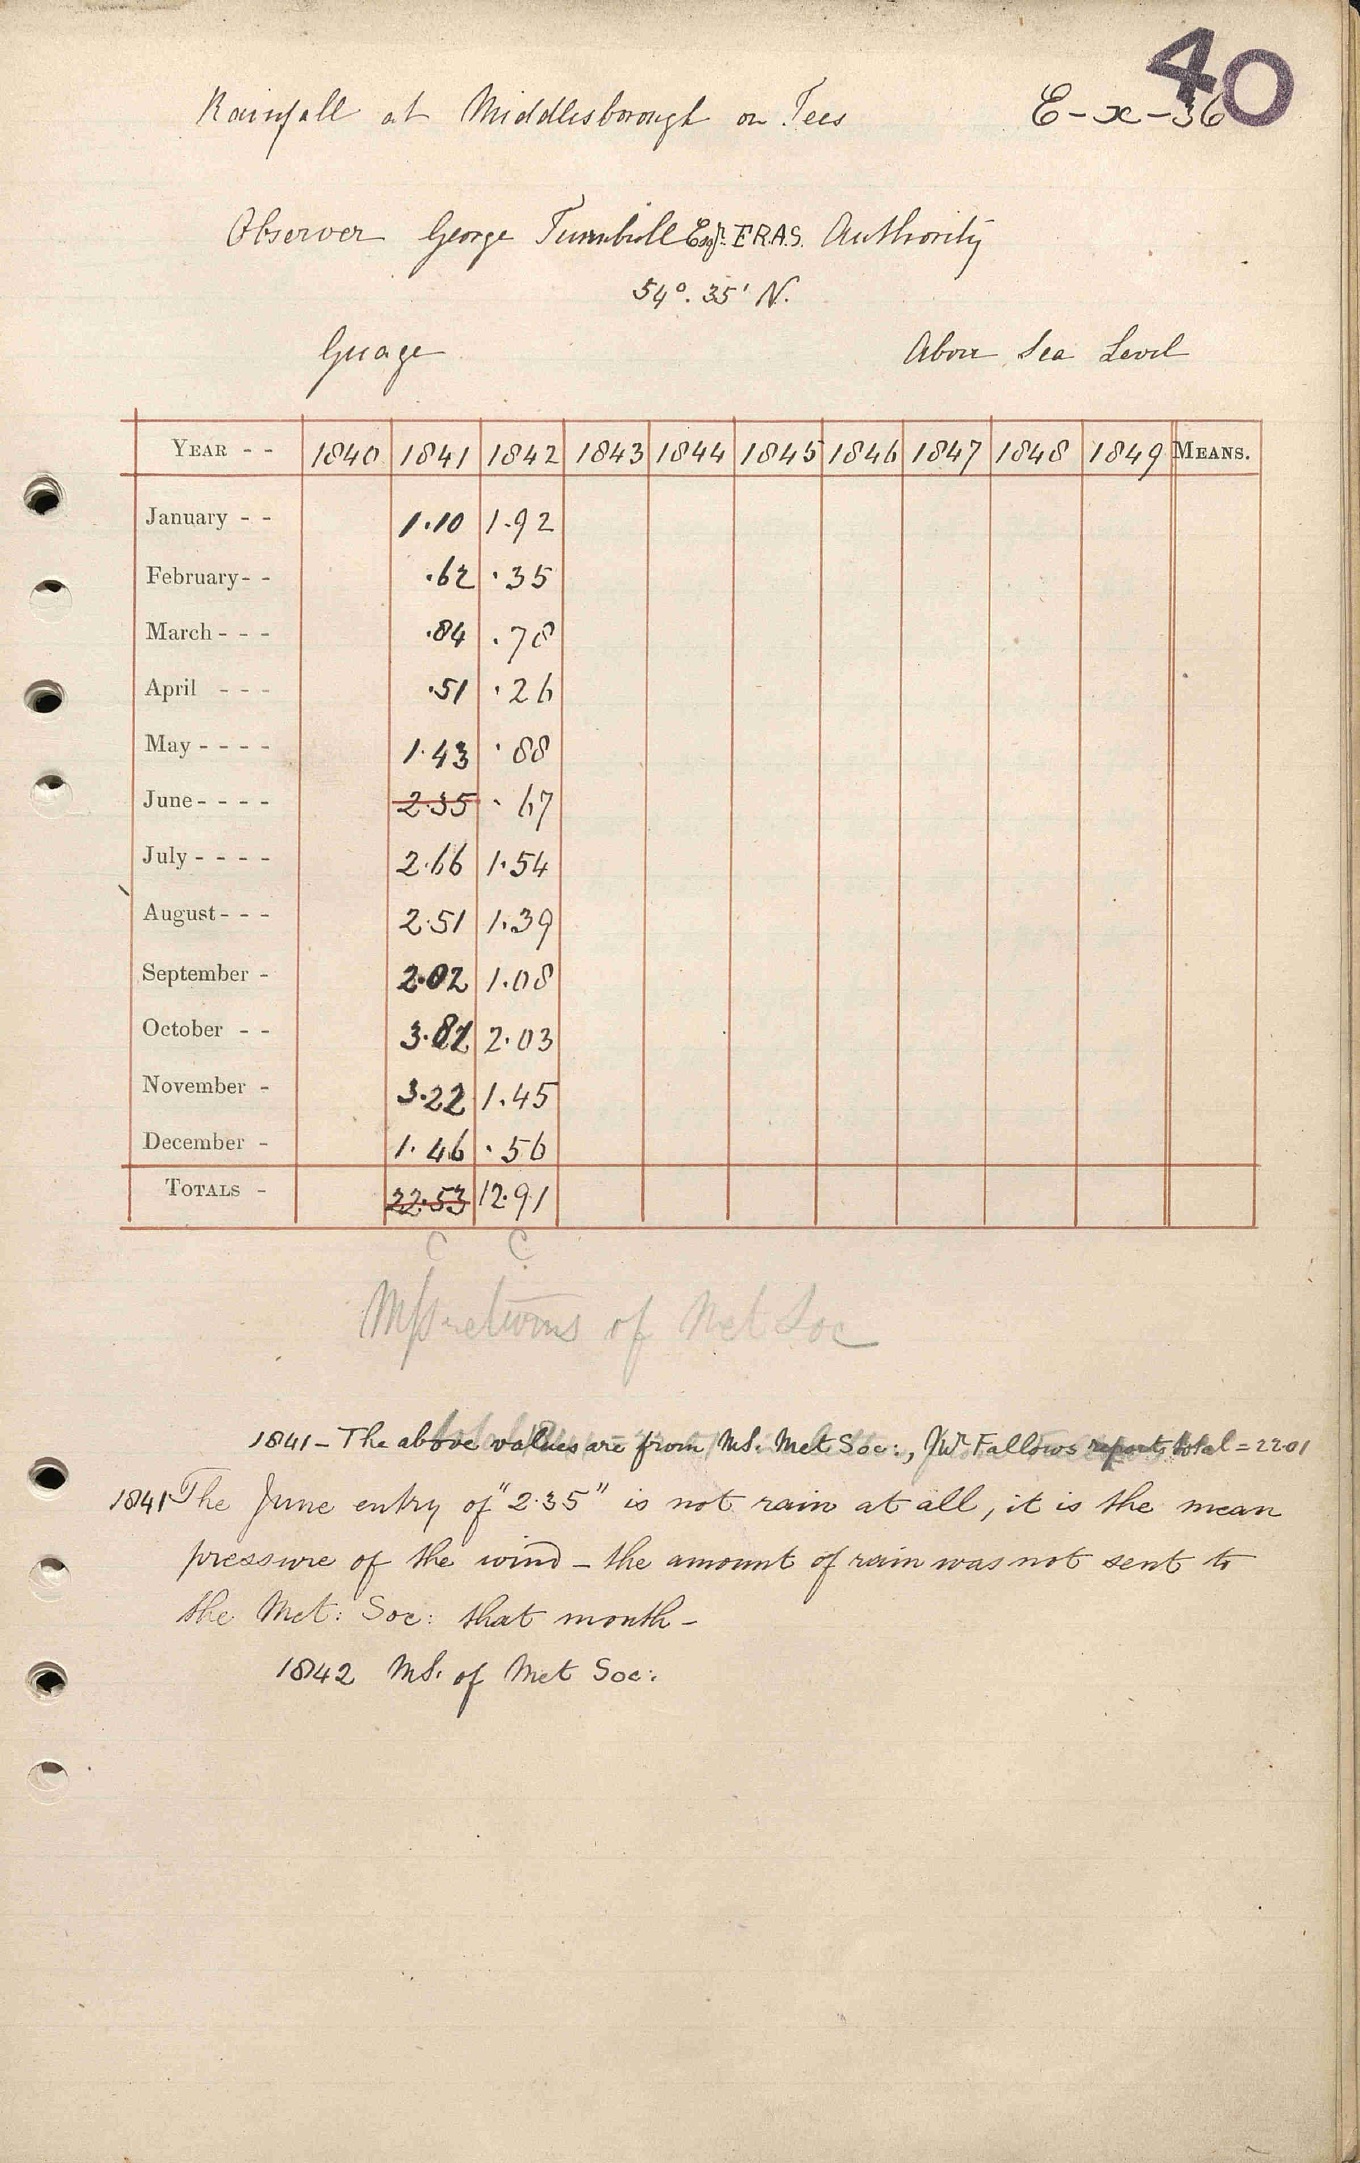 40
Rainfall at Middlesborough on Tees E-x-36
Observer George Turnbull Esqr. F.R.A.S. Authority
54°. 35' N.
Guage Above Sea Level
YEAR - - 1840 1841 1842 1843 1844 1845 1846 1847 1848 1849 MEANS.
January - - 1.10 1.92
February - - .62 .35
March - - - .84 .78
April - - - .51 .26
May - - - - 1.43 .88
June - - - - 2.35 .67
July - - - - 2.66 1.54
August - - - 2.51 1.39
September - 2.02 1.08
October - - 3.82 2.03
November - 3.22 1.45
December - 1.46 .56
TOTALS - 22.53 12.91
C C
MSS returns of Met Soc
1841 - The above values are from MS. Met Soc:, Fallows reports total = 22.01
1841 The June entry of "2.35" is not rain at all, it is the mean
pressure of the wind - the amount of rain was not sent to
the Met: Soc: that month -
1842 MS. of Met Soc: